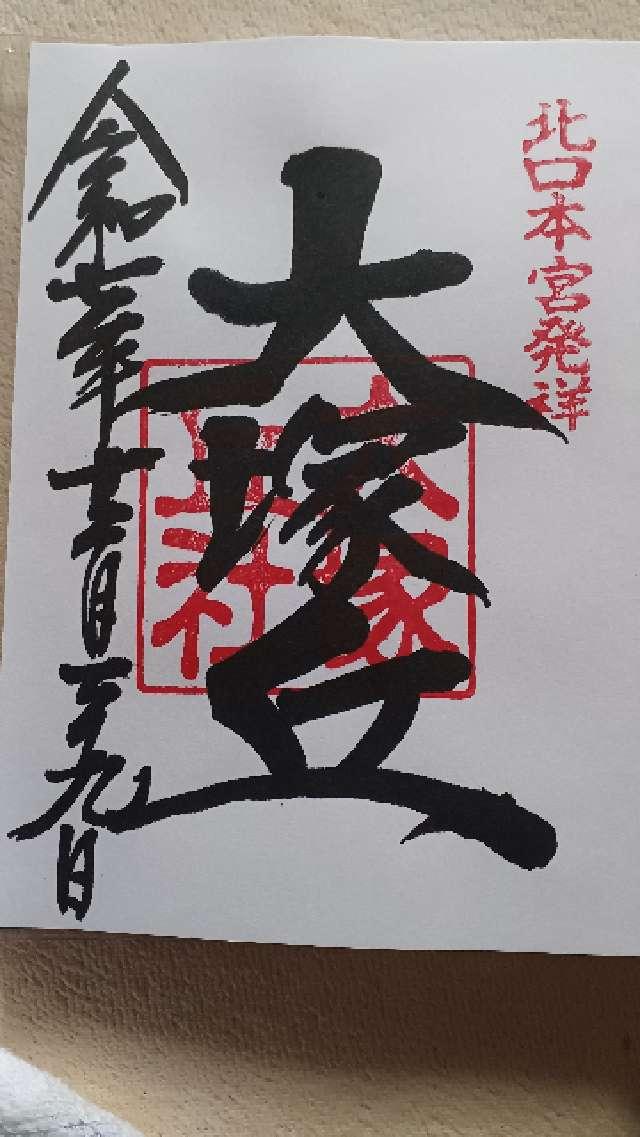 北口本宮発祥
大塚丘
大塚
丘社
令和七年十二月二十九日